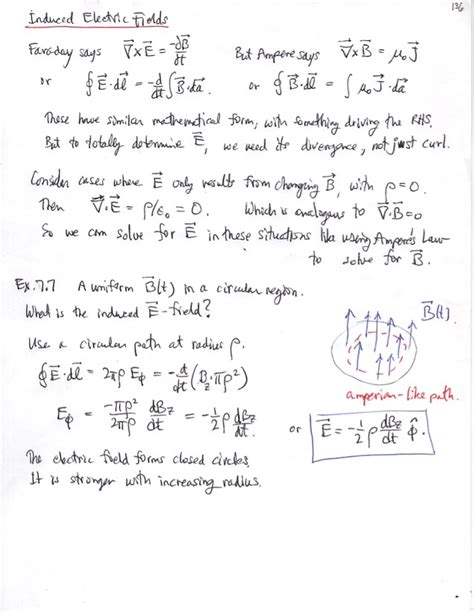 136
Induced Electric Fields
Faraday says ∇⃗×E⃗ = -∂B⃗/∂t But Ampere says ∇⃗×B⃗ = μ₀J⃗
or ∮E⃗·dl⃗ = -d/dt ∫B⃗·da⃗. or ∮B⃗·dl⃗ = ∫μ₀J⃗·da⃗
These have similar mathematical form, with something driving the RHS.
But to totally determine E⃗, we need its divergence, not just curl.
Consider cases where E⃗ only results from changing B⃗, with ρ=0.
Then ∇⃗·E⃗ = ρ/ε₀ = 0. Which is analogous to ∇⃗·B⃗=0
So we can solve for E⃗ in these situations like using Ampere's Law
to solve for B⃗.
Ex. 7.7 A uniform B⃗(t) in a circular region.
What is the induced E⃗-field?
B⃗(t).
Use a circular path at radius ρ.
∮E⃗·dl⃗ = 2πρ E_φ = -d/dt (B_z πρ²)
amperian-like path.
E_φ = -πρ²/2πρ dB_z/dt = -1/2 ρ dB_z/dt or E⃗ = -1/2 ρ dB_z/dt φ̂.
The electric field forms closed circles.
It is stronger with increasing radius.